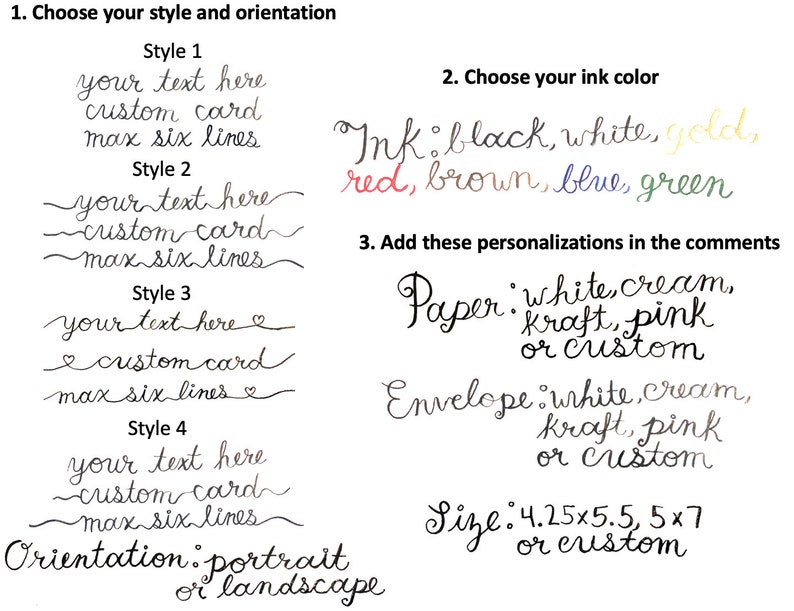 1. Choose your style and orientation
Style 1
your text here
custom card
max six lines
Style 2
your text here
custom card
max six lines
Style 3
your text here
custom card
max six lines
Style 4
your text here
custom card
max six lines
Orientation: portrait
or landscape
2. Choose your ink color
Ink: black, white, gold,
red, brown, blue, green
3. Add these personalizations in the comments
Paper: white, cream,
kraft, pink
or custom
Envelope: white, cream,
kraft, pink
or custom
Size: 4.25x5.5, 5x7
or custom